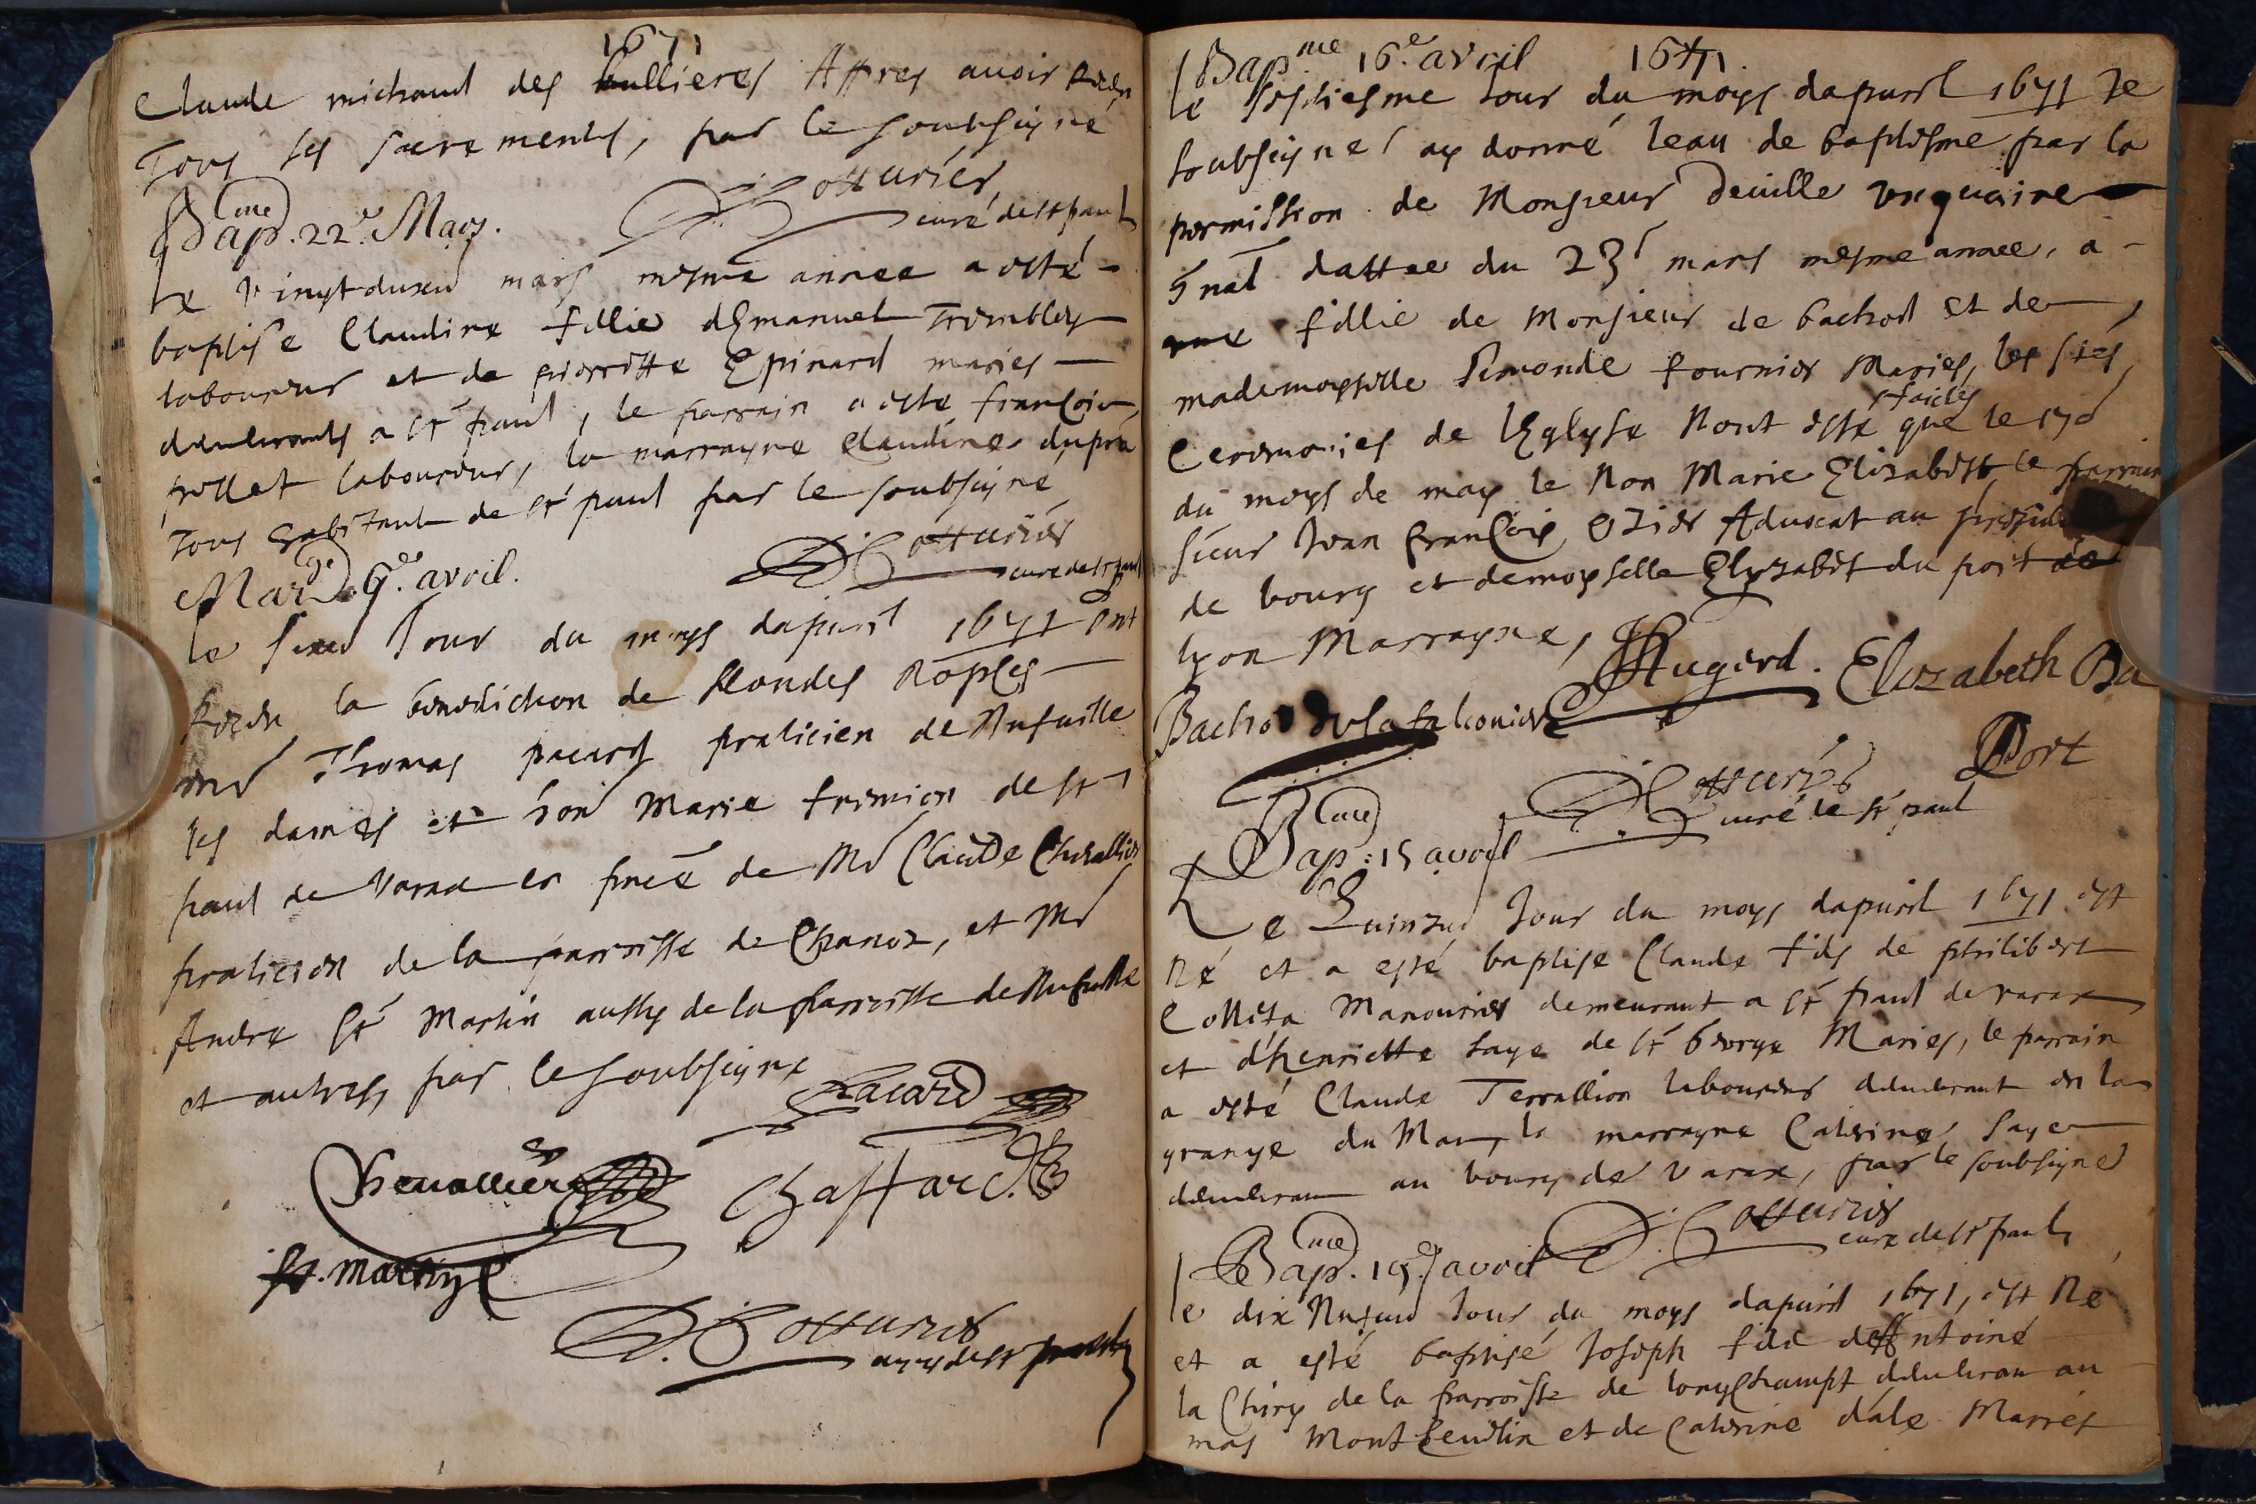 1671
Claude michaud des bullieres Appres avoir receu
Tous ses sacrements, par le soubsigné
Cotturier
curé de st paul
Bapme. 22e Mars.
Le vingt duxe mars mesme annee a esté
baptise Claudine fillie dEmanuel Trembley
laboureur et de pierrette Epinard maries
demeurants a st paul, le parrain a este françois
pillet laboureur, la marrayne Claudine dupra
Tous habitant de st paul par le soubsigné
D. Cotturier
curé de st paul
Marge. 6e. avril.
le sixe Jour du moys dapuril 1671 Ont
receu la benediction de Nopces
Mr Thomas pacard praticien de Nufville
les dames et hon Marie fremion de st
paul de varax en pnce de Mr Claude Chevallier
praticien de la parroisse de Chanoz, et Mr
Andre st Martin aussy de la parroisse de Nufville
et autres, par le soubsigne
Pacard
Chevallier Chaffard
st. martin
D. Cotturier
curé de st paul
Bapme 16e. avril 1671.
le sesiesme Jour du moys dapuril 1671 Je
soubsigné ay donné leau de baptisme par la
permission de Monsieur deville viquaire
Gnal dattee du 23e mars mesme annee, a
une fillie de Monsieur de bachod et de
mademoyselle Simonde fournier Maries, les stes
Ceremonies de lEglyse Nont esté faictes que le
du moys de may le Nom Marie Elizabeth le parrain
sieur Jean françois Ozier Aduocat au
de bourg et demoyselle Elyzabet du port de
lyon Marrayne,
Hugerd. Elizabeth Du
Port
Bachod de la falconiere
D. Cotturier
curé de st paul
Bapme: 15 avril
Le Quinze Jour du moys dapuril 1671 est
Né et a esté baptise Claude fils de philibert
Colleta Manouvrier demeurant a st paul de varax
et d'henriette saye de st george Maries, le parrain
a esté Claude Terrallion laboureur demeurant en la
grange du Mas, la marrayne Caterine saye
demeurant au bourg de varax, par le soubsigné
D. Cotturier
curé de st paul
Bapme. 19e. avril
le dix Nufie Jour du moys dapuril 1671, est Né
et a esté baptisé Joseph fils dAntoine
la Chiry de la parroisse de longchampt demeurant au
mas Montbeudin et de Caterine dale Mariés